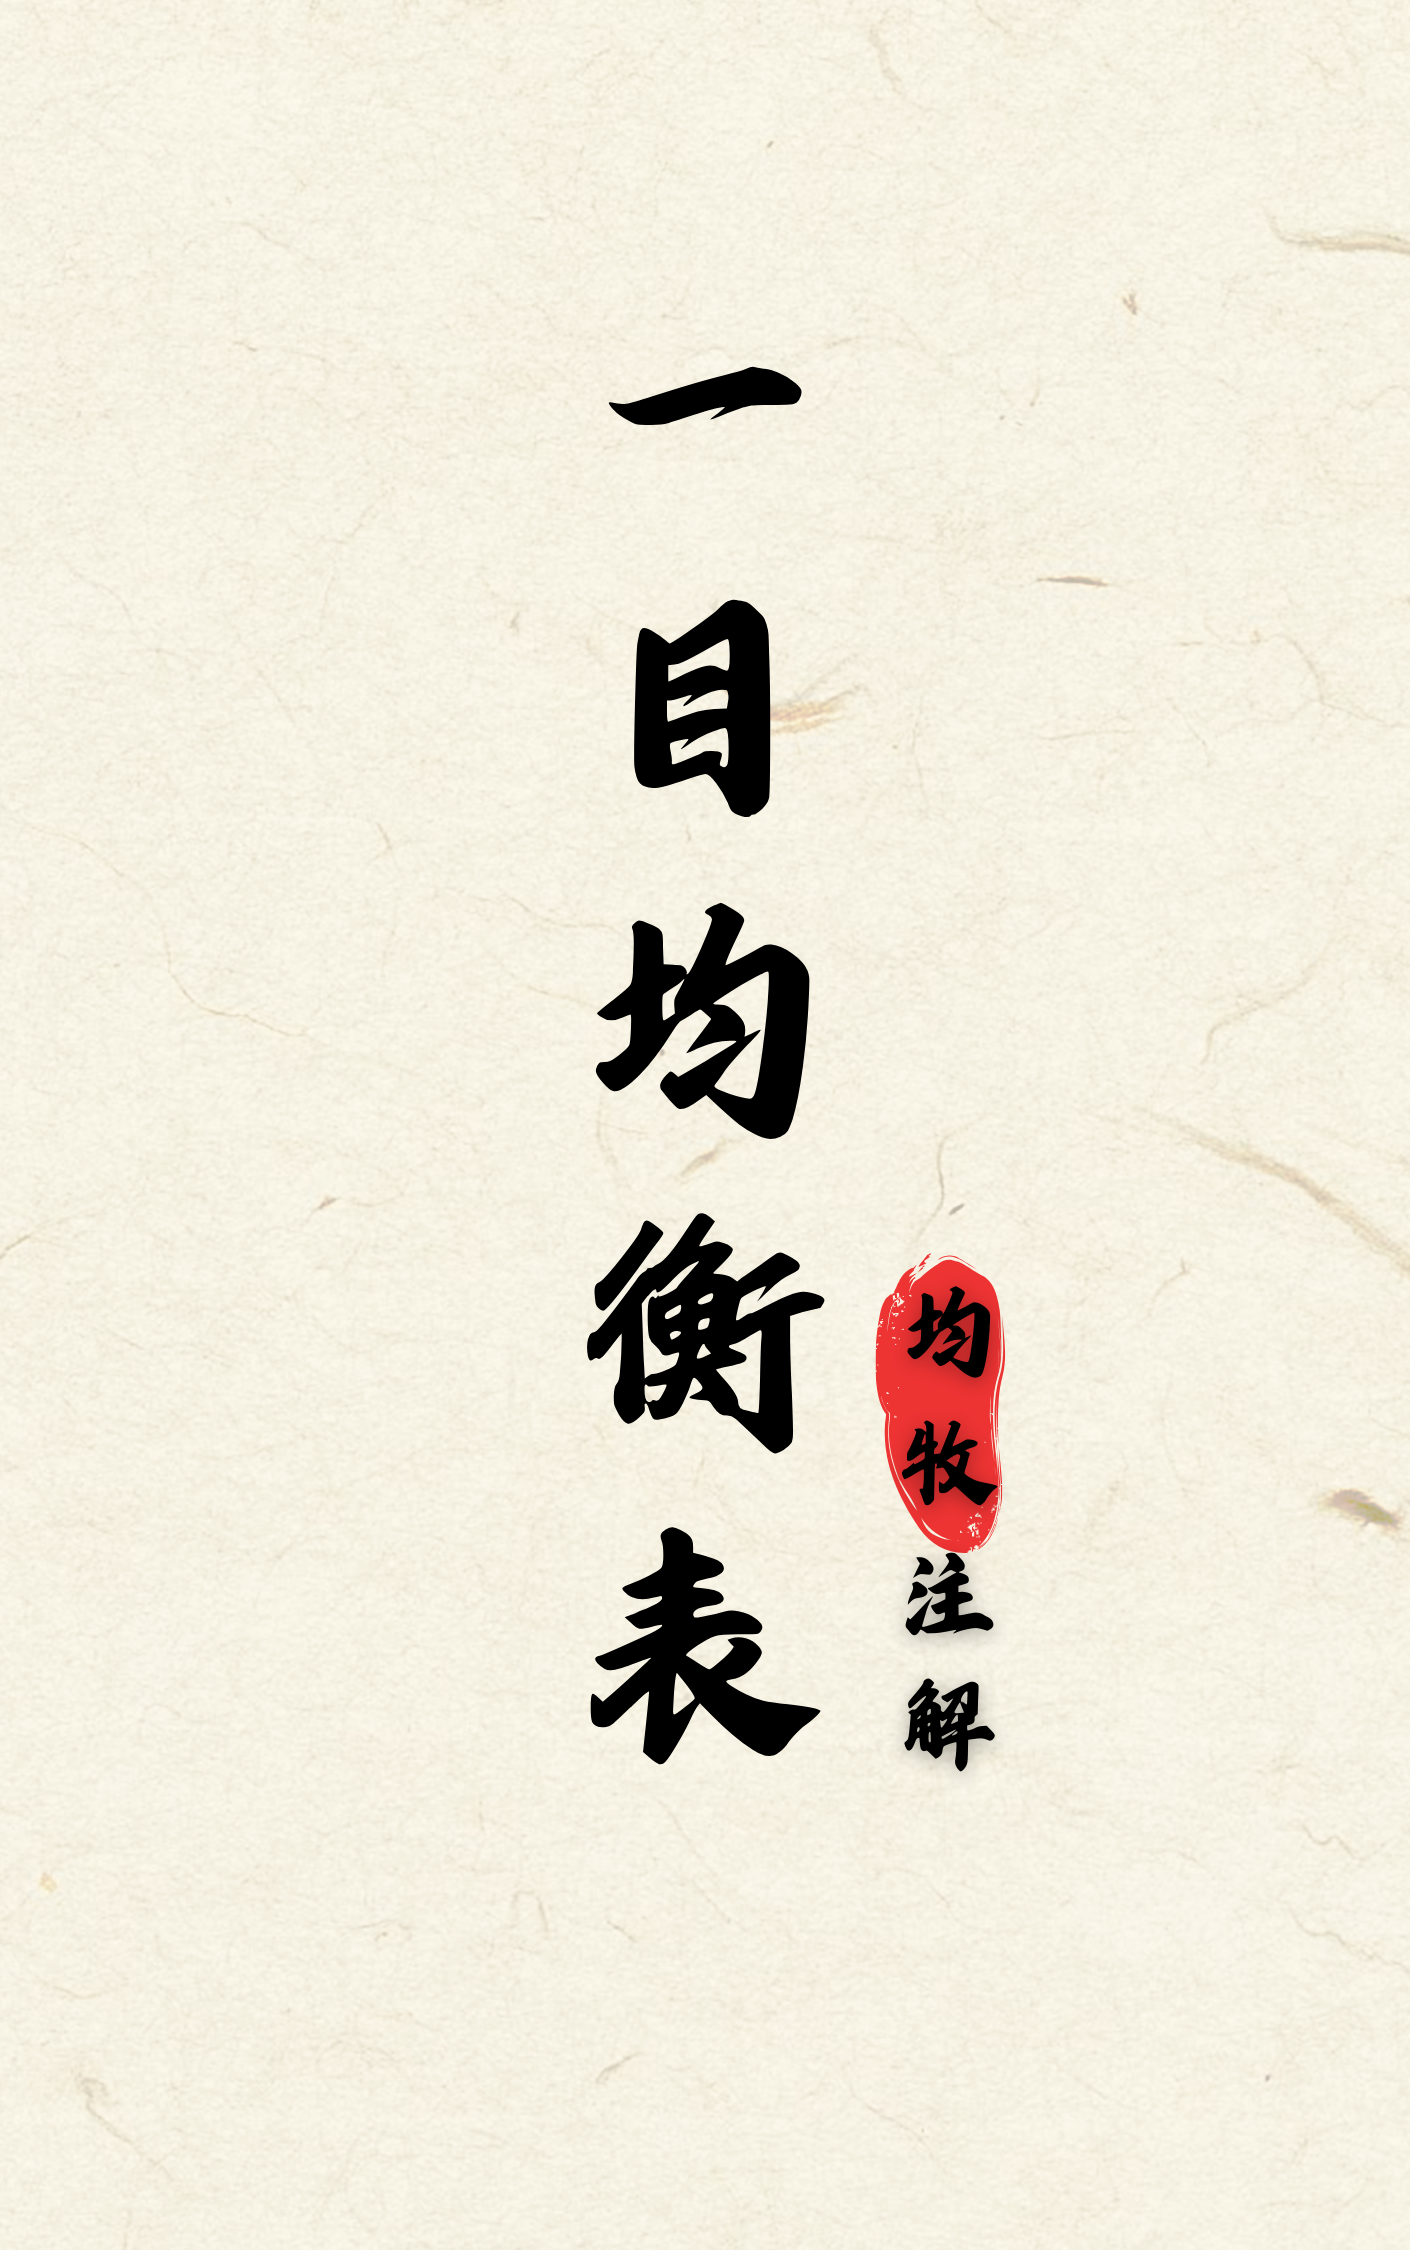 一目均衡表
均牧注解